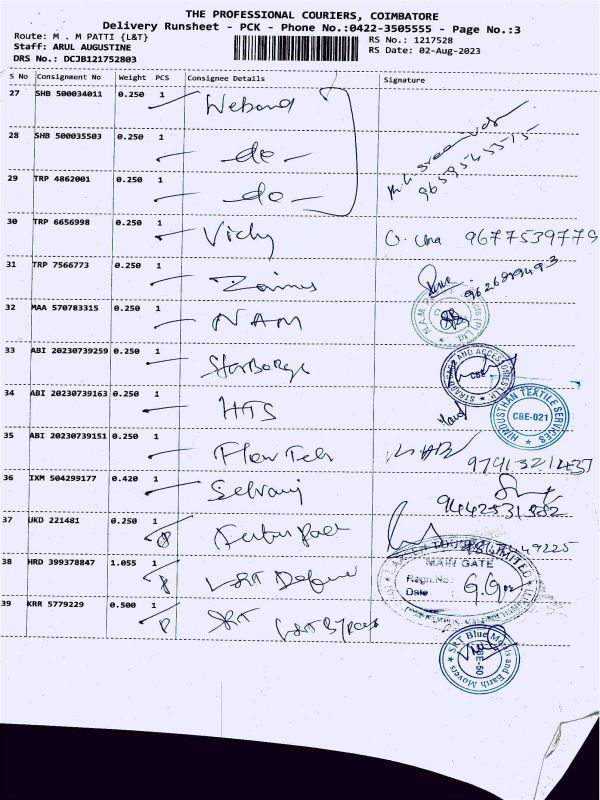 THE PROFESSIONAL COURIERS, COIMBATORE
Delivery Runsheet - PCK - Phone No.:0422-3505555 - Page No.:3
Route: M . M PATTI {L&T} RS No.: 1217528
Staff: ARUL AUGUSTINE RS Date: 02-Aug-2023
DRS No.: DCJB121752803
S No Consignment No Weight PCS Consignee Details Signature
27 SHB 500034011 0.250 1
28 SHB 500035503 0.250 1 - do -
29 TRP 4862001 0.250 1 - do -
9659545515
30 TRP 6656998 0.250 1 Vicky 9677539779
31 TRP 7566773 0.250 1
32 MAA 570783315 0.250 1 NAM
N.A.M
33 ABI 20230739259 0.250 1
CBE
34 ABI 20230739163 0.250 1 HTS
HINDUSTHAN TEXTILE SERVICES
CBE-021
35 ABI 20230739151 0.250 1 Flow Tech
9791321437
36 IXM 504299177 0.420 1 Selvaraj
37 UKD 221481 0.250 1
38 HRD 399378847 1.055 1 L&T Defence
MAIN GATE
Regn.No:
Date :
39 KRR 5779229 0.500 1 SRT L&T Bypass
SRT Blue Metals and Earth Movers
CBE-50